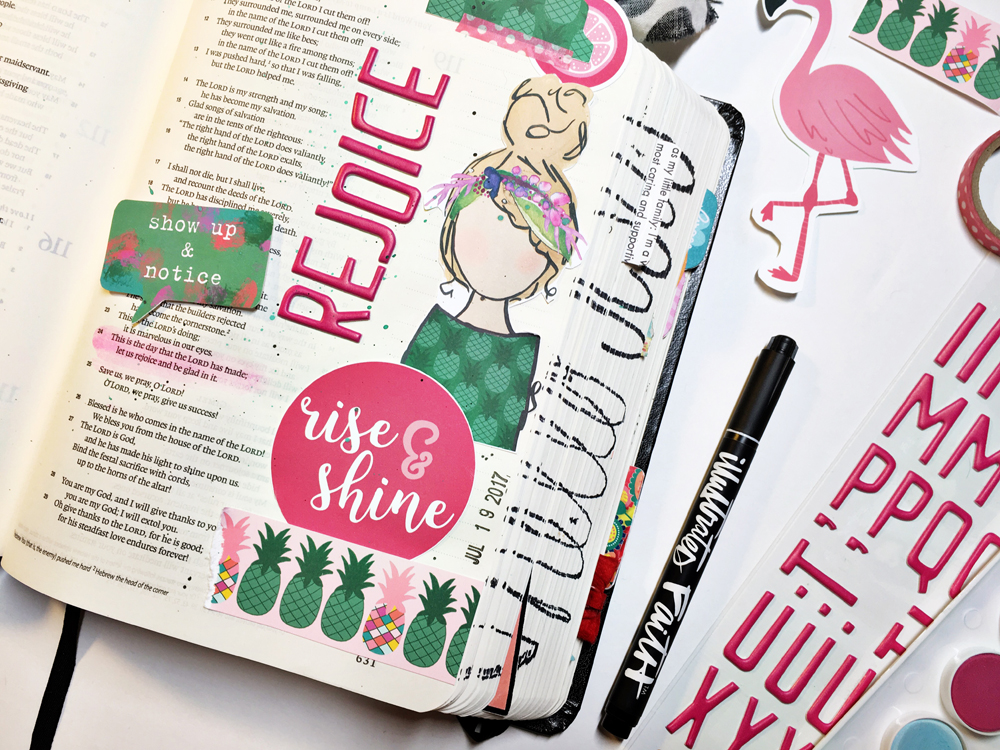 maidservant.
112
116
12 They surrounded me, surrounded me on every side;
in the name of the LORD I cut them off!
They surrounded me like bees;
they went out like a fire among thorns;
in the name of the LORD I cut them off!
I was pushed hard, so that I was falling,
but the LORD helped me.
14 The LORD is my strength and my song;
he has become my salvation.
15 Glad songs of salvation
are in the tents of the righteous:
"The right hand of the LORD does valiantly,
16 the right hand of the LORD exalts,
the right hand of the LORD does valiantly!"
17 I shall not die, but I shall live,
and recount the deeds of the LORD.
18 The LORD has disciplined me severely,
death.
show up
&
notice
that the builders rejected
become the cornerstone.
23 This is the LORD's doing;
it is marvelous in our eyes.
24 This is the day that the LORD has made;
let us rejoice and be glad in it.
25 Save us, we pray, O LORD!
O LORD, we pray, give us success!
26 Blessed is he who comes in the name of the LORD!
We bless you from the house of the LORD.
27 The LORD is God,
and he has made his light to shine upon us.
Bind the festal sacrifice with cords,
up to the horns of the altar!
28 You are my God, and I will give thanks to yo
you are my God; I will extol you.
29 Oh give thanks to the LORD, for he is good;
for his steadfast love endures forever!
pushed me hard 2 Hebrew the head of the corner
631
REJOICE
rise &
shine
JUL 19 2017
as my little family; I'm a w
most caring and supporti
illustrated
FAITH
MM
PPPQ
T
XYY